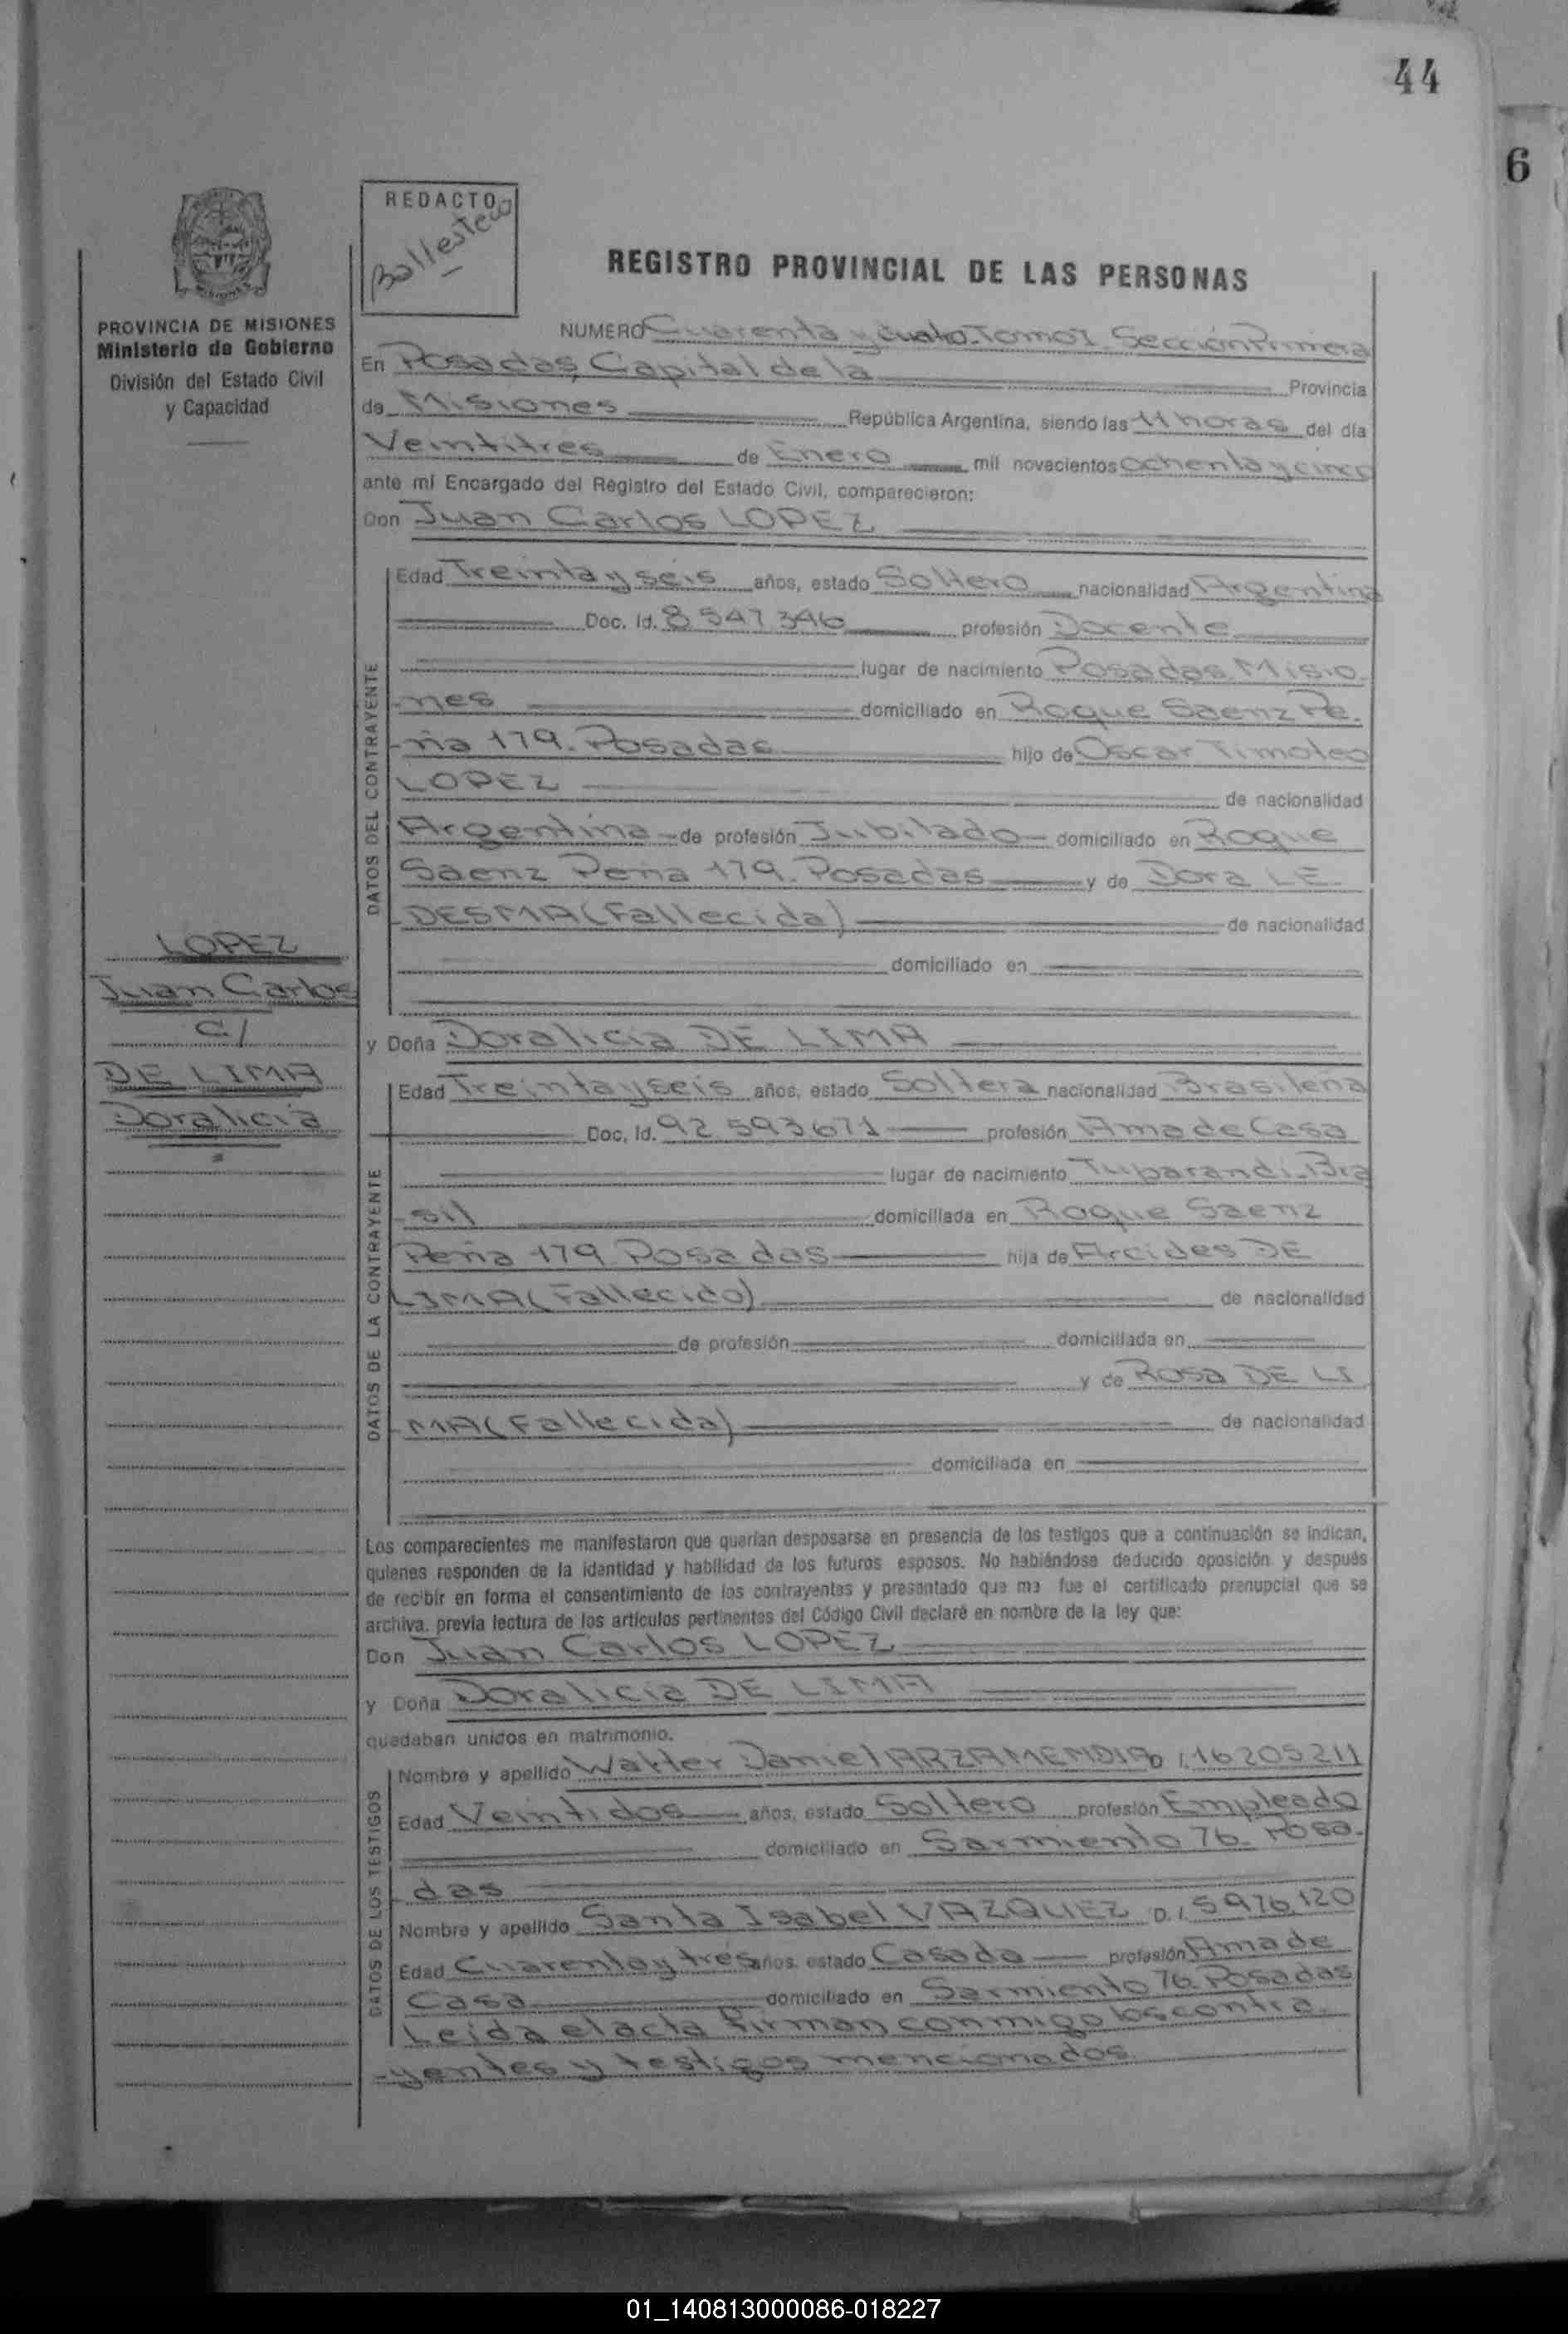 44
6
REDACTO
Ballestero
REGISTRO PROVINCIAL DE LAS PERSONAS
PROVINCIA DE MISIONES
Ministerio de Gobierno
División del Estado Civil
y Capacidad
NUMERO Cuarenta y cuatro. Tomo I Sección Primera
En Posadas, Capital de la Provincia
de Misiones República Argentina, siendo las 11 horas del día
Veintitres de Enero mil novecientos ochenta y cinco
ante mí Encargado del Registro del Estado Civil, comparecieron:
Don Juan Carlos LOPEZ
DATOS DEL CONTRAYENTE
Edad Treinta y seis años, estado Soltero nacionalidad Argentina
Doc. Id. 8 547 346 profesión Docente
lugar de nacimiento Posadas, Misio
-nes domiciliado en Roque Saenz Pe-
-ña 179. Posadas hijo de Oscar Timoteo
LOPEZ de nacionalidad
Argentina - de profesión Jubilado - domiciliado en Roque
Saenz Peña 179. Posadas y de Dora LE-
-DESMA (Fallecida) de nacionalidad
domiciliado en
LOPEZ
Juan Carlos
C/
DE LIMA
Doralicia
y Doña Doralicia DE LIMA
DATOS DE LA CONTRAYENTE
Edad Treinta y seis años, estado Soltera nacionalidad Brasileña
Doc. Id. 92 593 671 profesión Ama de Casa
lugar de nacimiento Tuparandi-Bra
-sil domiciliada en Roque Saenz
Peña 179 Posadas hija de Arcides DE
LIMA (Fallecido) de nacionalidad
de profesión domiciliada en
y de Rosa DE LI
-MA (Fallecida) de nacionalidad
domiciliada en
Los comparecientes me manifestaron que querían desposarse en presencia de los testigos que a continuación se indican,
quienes responden de la identidad y habilidad de los futuros esposos. No habiéndose deducido oposición y después
de recibir en forma el consentimiento de los contrayentes y presentado que me fue el certificado prenupcial que se
archiva, previa lectura de los artículos pertinentes del Código Civil declaré en nombre de la ley que:
Don Juan Carlos LOPEZ
y Doña Doralicia DE LIMA
quedaban unidos en matrimonio.
DATOS DE LOS TESTIGOS
Nombre y apellido Walter Daniel ARZAMENDIA D.I. 16 205 211
Edad Veintidos años, estado Soltero profesión Empleado
domiciliado en Sarmiento 76. Posa-
-das
Nombre y apellido Santa Isabel VAZQUEZ D.I. 5 976 120
Edad Cuarenta y tres años. estado Casada profesión Ama de
Casa domiciliado en Sarmiento 76 Posadas
Leida el acta Firman conmigo los contra-
-yentes y testigos mencionados
01_140813000086-018227